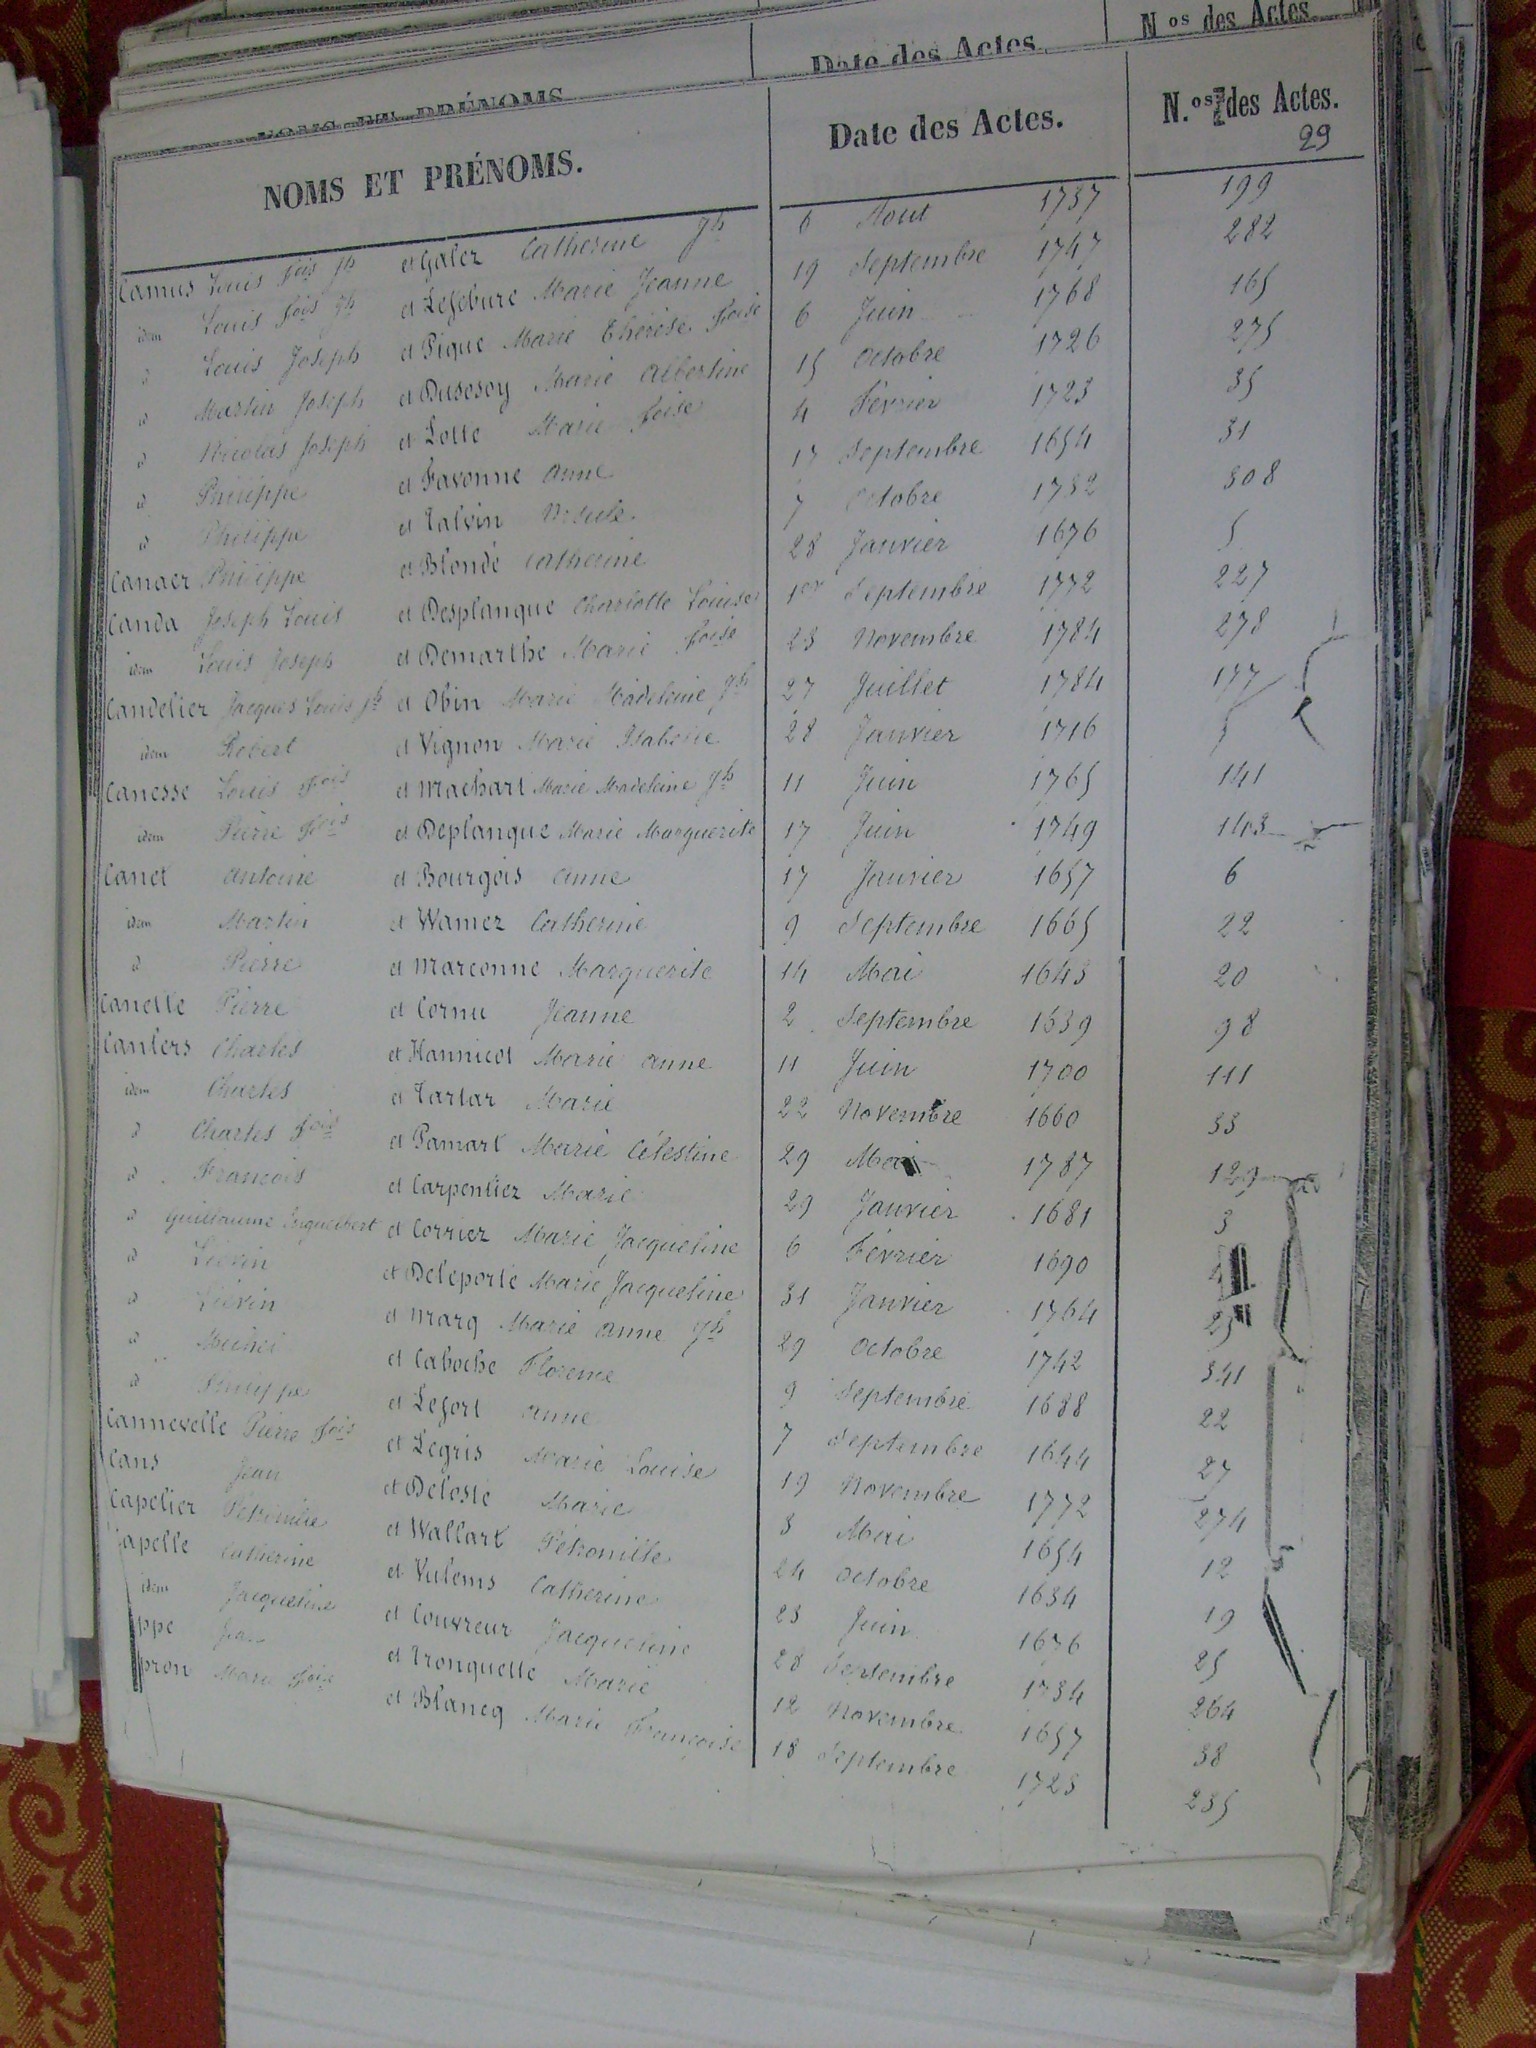 N.os des Actes.
Date des Actes.
NOMS ET PRÉNOMS.
NOMS ET PRÉNOMS. Date des Actes. N.os des Actes.
29
Camus Louis fois jh et Galez Catherine jh 6 Aout 1737 199
idem Louis fois jh et Lefebvre Marie Jeanne 19 Septembre 1747 282
d Louis Joseph et Pique Marie Thérèse foise 6 Juin 1768 165
d Martin Joseph et Dusosoy Marie Albertine 15 Octobre 1726 275
d Nicolas Joseph et Lotte Marie foise 4 Février 1723 35
d Philippe et Favonne Anne 17 Septembre 1654 31
d Philippe et Talvin Ursule 7 Octobre 1732 308
Canaer Philippe et Blondé Catherine 28 Janvier 1676 5
Canda Joseph Louis et Desplanque Charlotte Louise 1er Septembre 1772 227
idem Louis Joseph et Demarthe Marie foise 23 Novembre 1784 278
Candelier Jacques Louis jh et Obin Marie Madeleine jh 27 Juillet 1784 177
idem Robert et Vignon Marie Isabelle 28 Janvier 1716 5
Canesse Louis fois et Machart Marie Madeleine jh 11 Juin 1765 141
idem Pierre fois et Deplanque Marie Marguerite 17 Juin 1749 143
Canet Antoine et Bourgois Anne 17 Janvier 1657 6
idem Martin et Wamez Catherine 9 Septembre 1665 22
d Pierre et Marconne Marguerite 14 Mai 1643 20
Canette Pierre et Cornu Jeanne 2 Septembre 1639 98
Canlers Charles et Hannicot Marie Anne 11 Juin 1700 111
idem Charles et Tartar Marie 22 Novembre 1660 33
d Charles fois et Pamart Marie Célestine 29 Mai 1787 129
d François et Carpentier Marie 29 Janvier 1681 3
d Guillaume Inguelbert et Corriez Marie Jacqueline 6 Février 1690
d Liévin et Deleporte Marie Jacqueline 31 Janvier 1764 25
d Liévin et Marq Marie Anne jh 29 Octobre 1742 341
d Michel et Caboche Florence 9 Septembre 1688 22
d Philippe et Lefort Anne 7 Septembre 1644 27
Cannevelle Pierre fois et Legris Marie Louise 19 Novembre 1772 274
Cans Jean et Deloste Marie 3 Mai 1654 12
Capelier Pétronille et Wallart Pétronille 24 Octobre 1634 19
apelle Catherine et Vulems Catherine 23 Juin 1676 25
idem Jacqueline et Couvreur Jacqueline 28 Septembre 1734 264
ppe Jean et Tronquette Marie 12 Novembre 1657 38
pron Marie foise et Blancq Marie Françoise 18 Septembre 1723 235